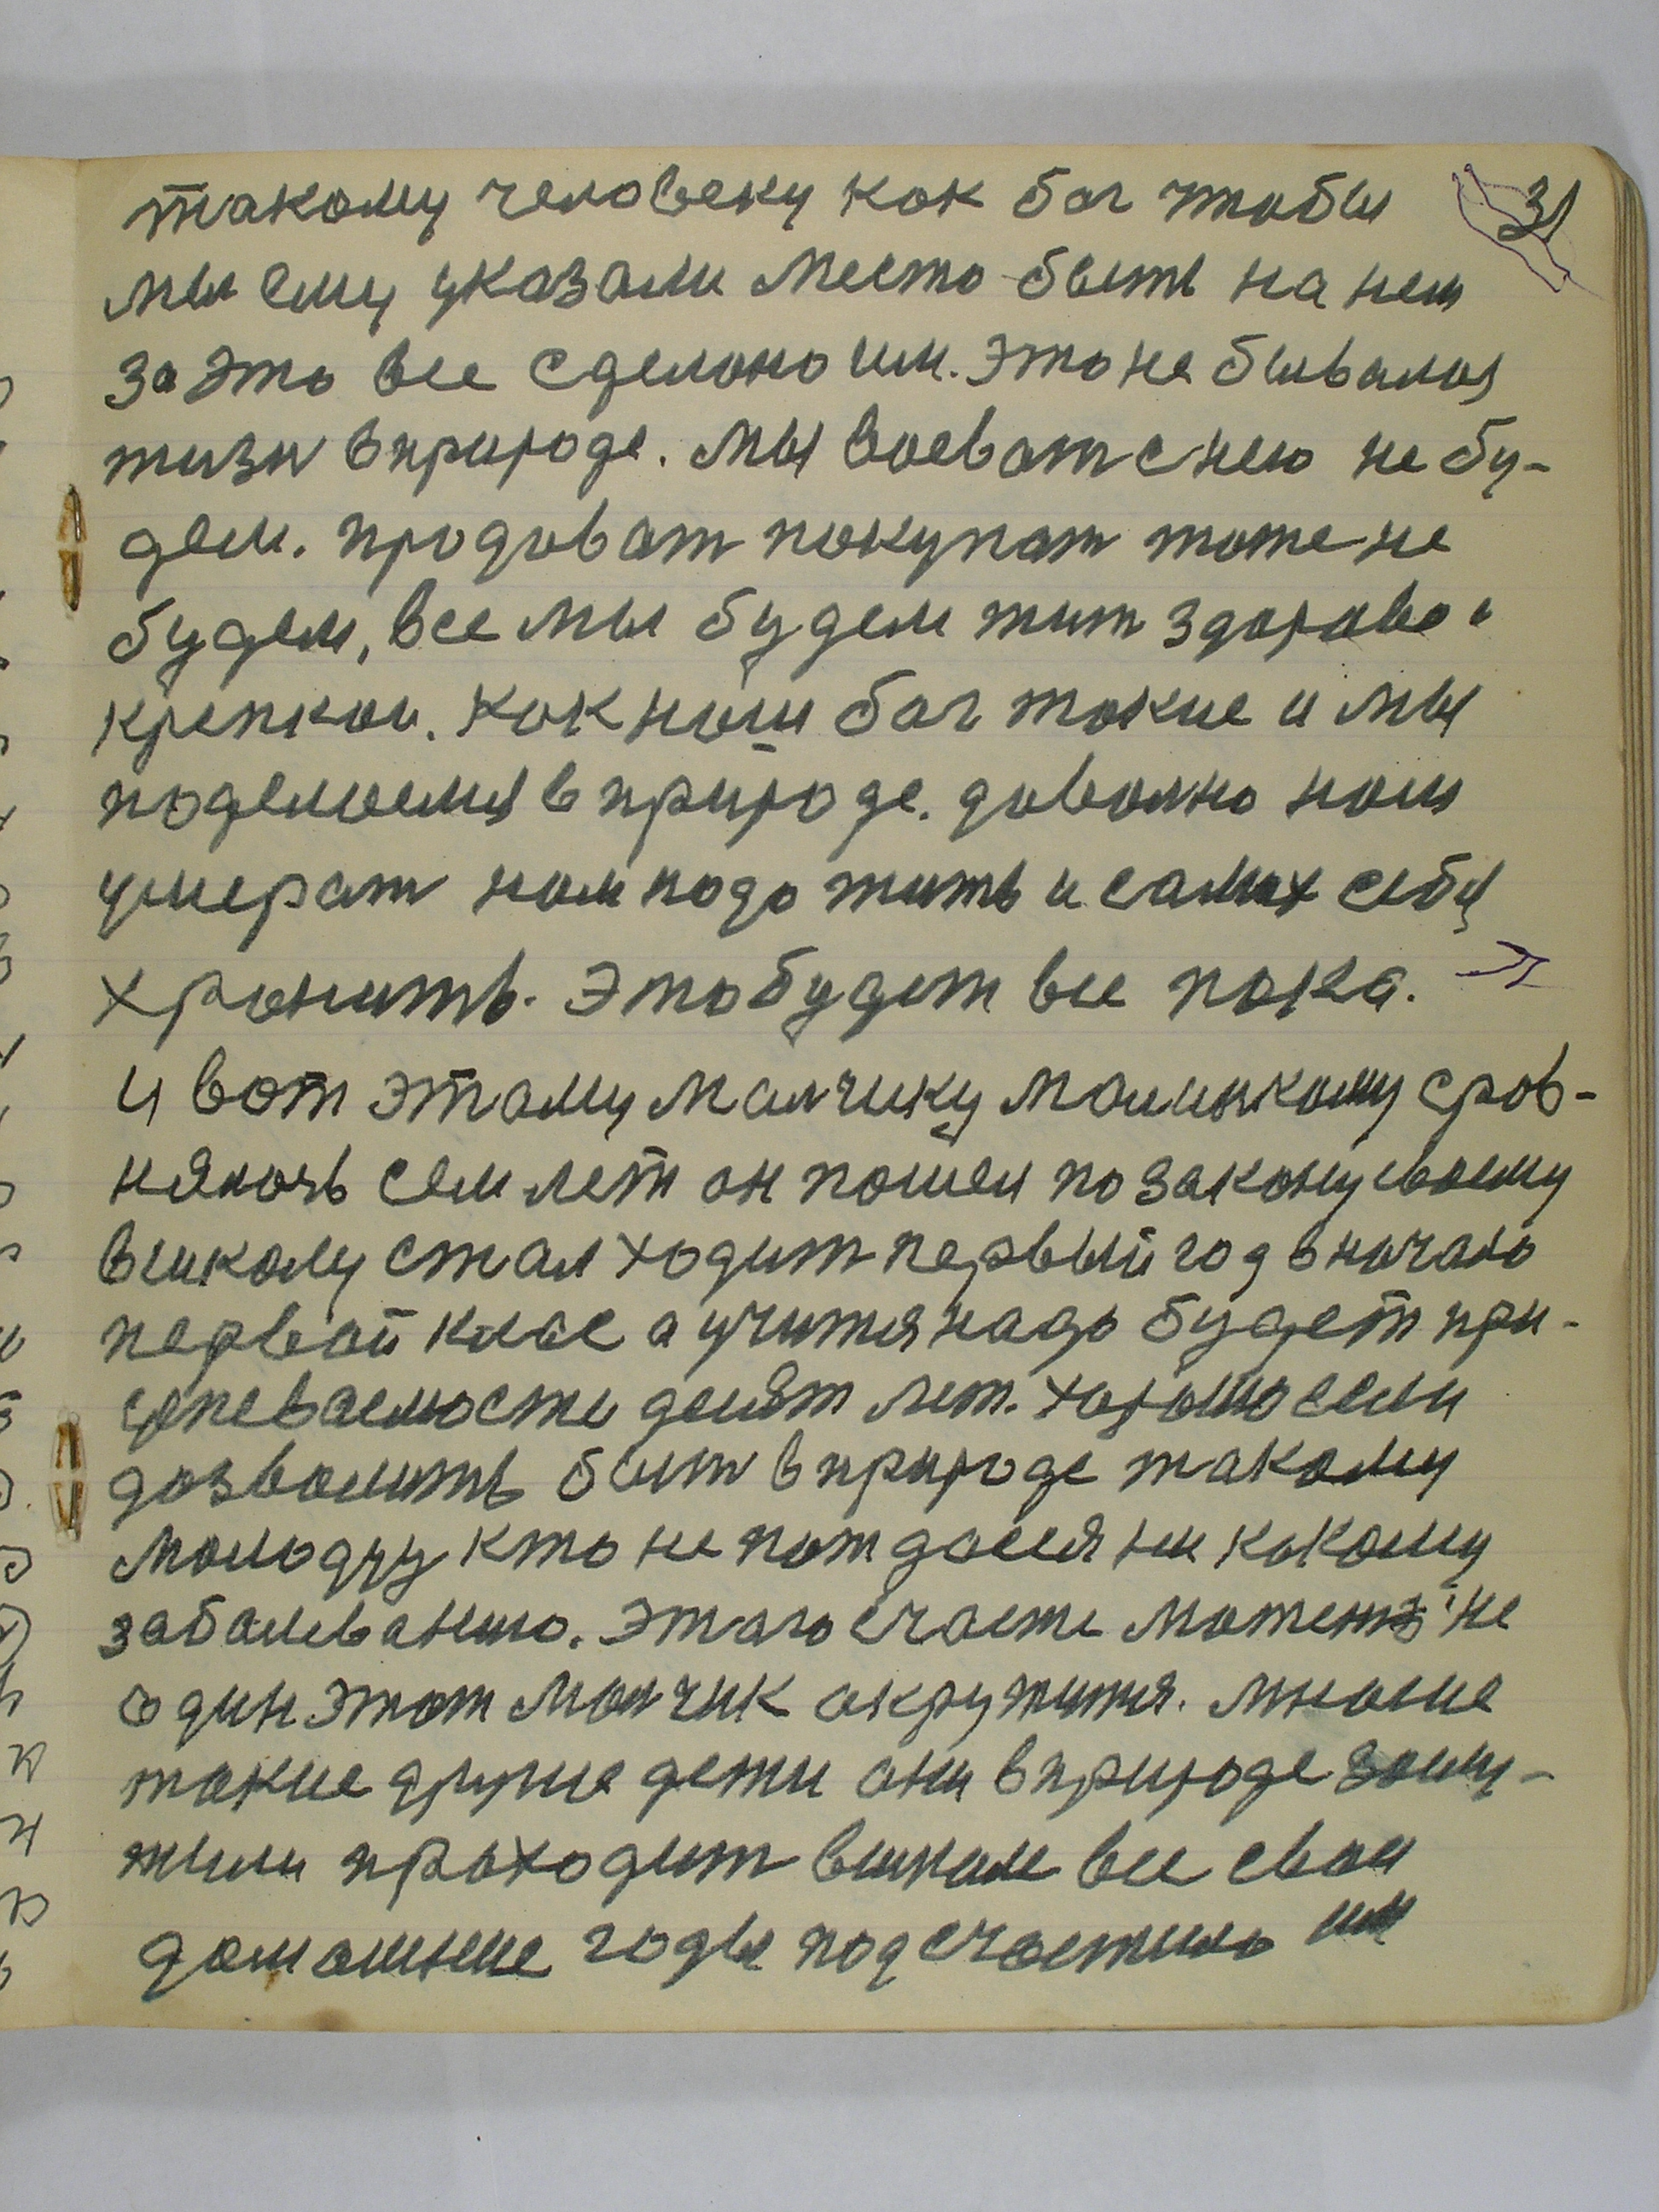 31
такому человеку как бог чтобы
мы ему указали место быть на нем
за это все сделоно им. это не бывалоя
жизн в природе. мы воеват с нею не бу-
дем. продават покупат тоже не
будем, все мы будем жит здорово и
крепкои. как нош бог токие и мы
поделоемся в природе. доволно ном
умерат ном надо жить и самих себя
хронить. это будет все пока.
и вот этому малчику молинкому сров-
нялось сем лет он пошел по закону своему
в школу стал ходит первый год в ночало
первой клас а учится надо будет при-
успеваемости десят лет. хорошо если
дозволить быт в природе такому
молодцу кто не поддоеся ни какому
заболеванию. этого счасте может не
один этот молчик окружится. многие
токие другие дети они в природе зощи-
жили проходит в школе все свои
домошнее годы подсчостило им